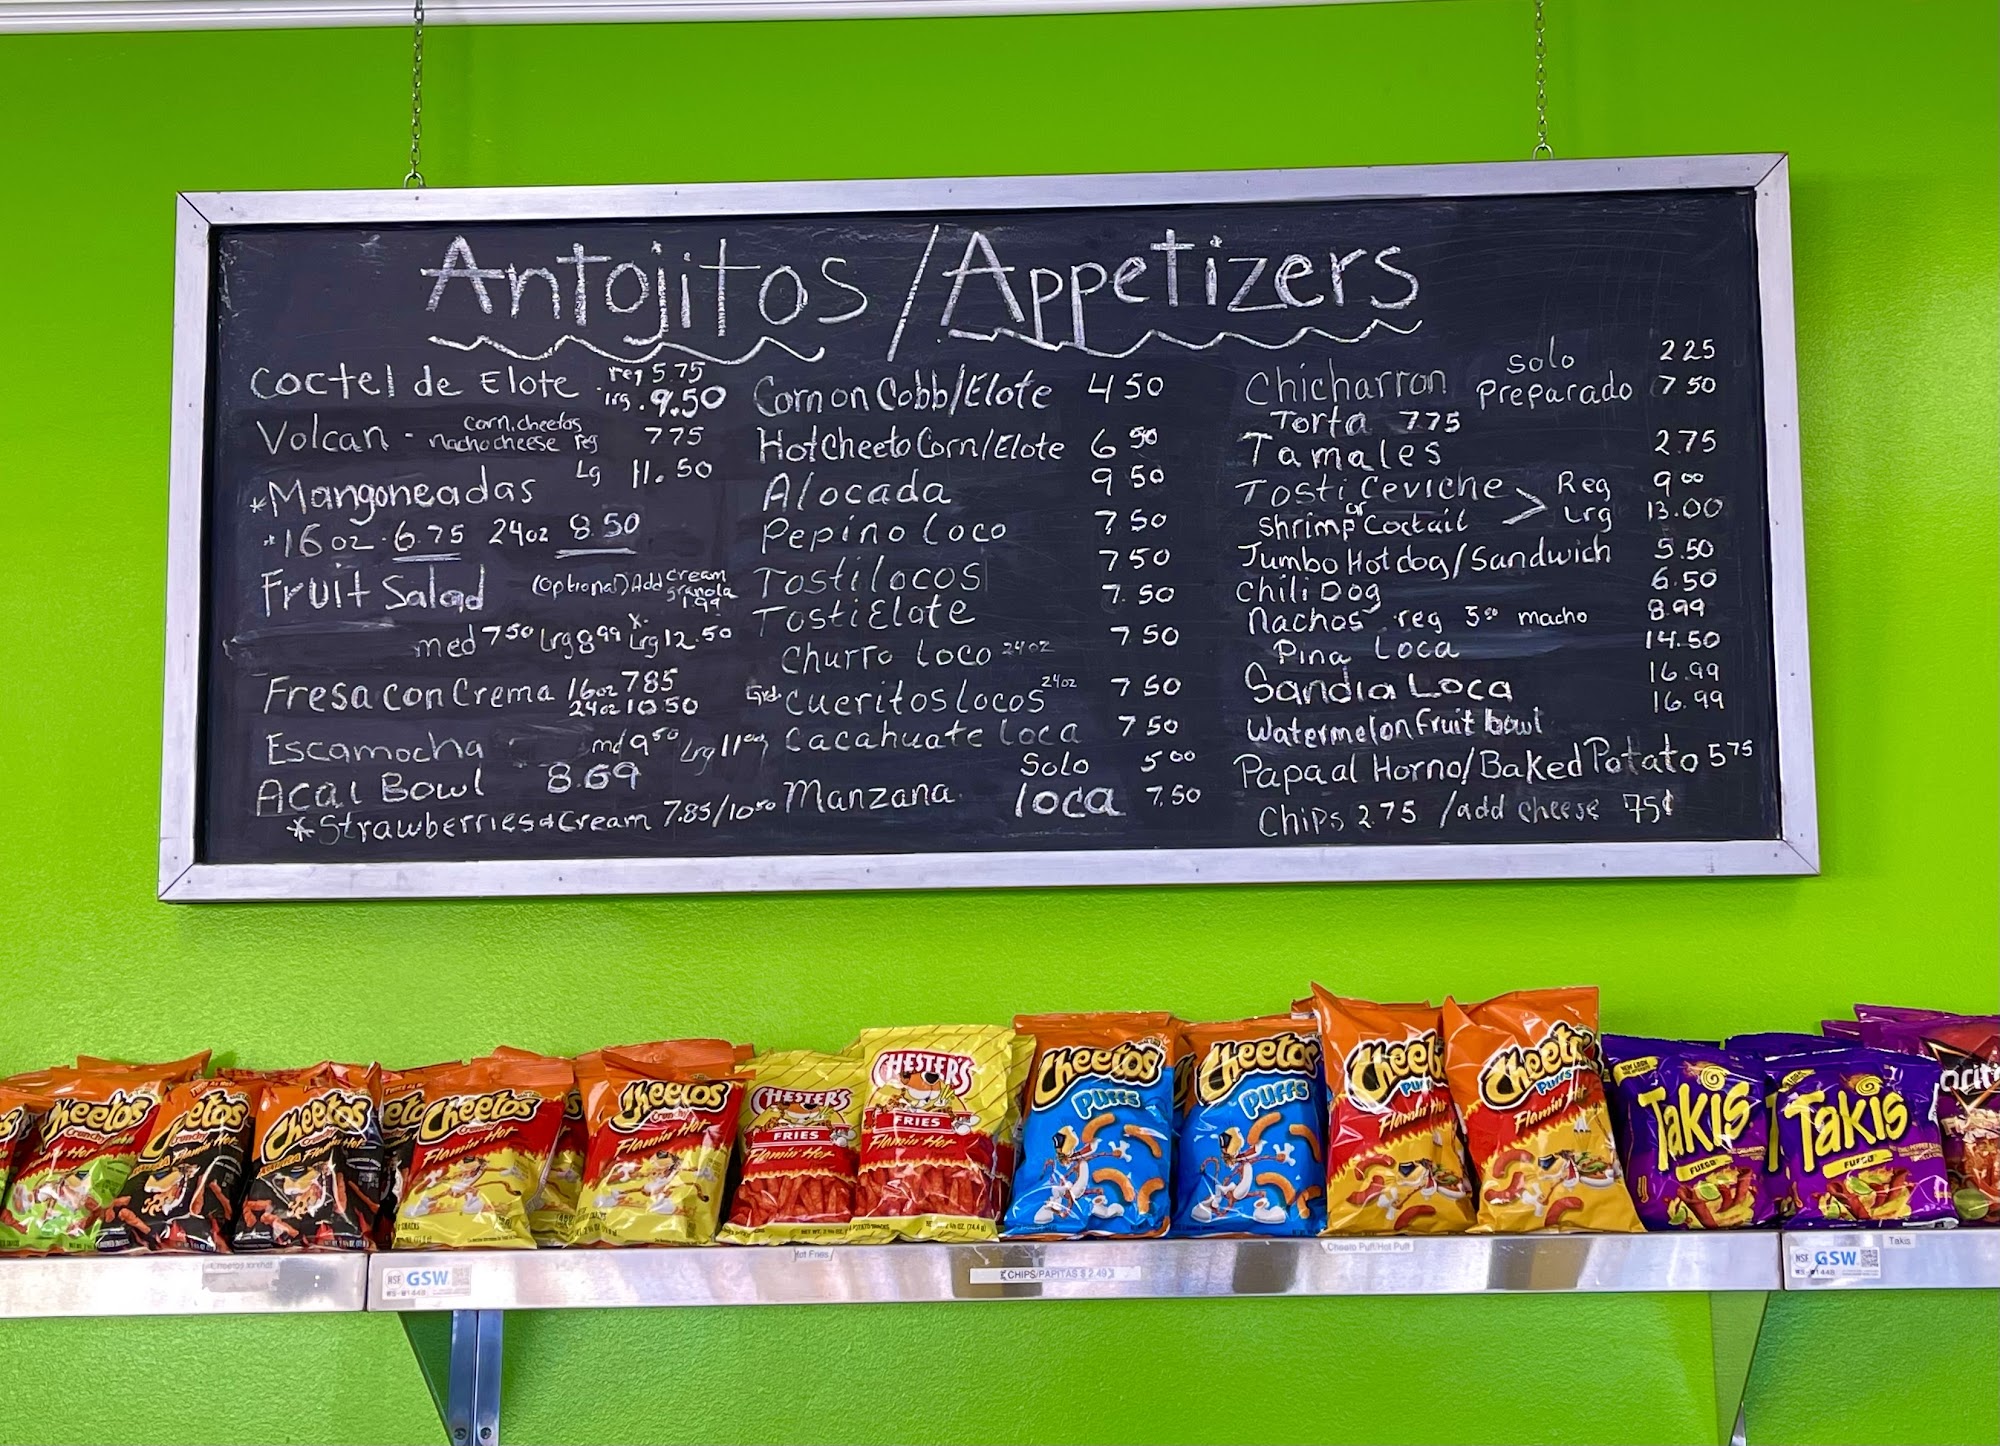 Antojitos / Appetizers
Coctel de Elote reg 5.75
lrg. 9.50
Volcan - corn, cheetos
nacho cheese reg 775
Lg 11.50
*Mangoneadas
*16oz - 6.75 24oz 8.50
Fruit Salad (optional) Add cream
granola
1.99
med 7 50 Lrg 8 99 x-Lrg 12.50
Fresa con Crema 16oz 785
24oz 10.50
Escamocha - md 9 50 Lrg 11 00
Acai Bowl 8.69
*Strawberries & Cream 7.85/10 50
Corn on Cobb/Elote 4 50
Hot Cheeto Corn/Elote 6 50
Alocada 9 50
Pepino Loco 7 50
Tostilocos 7 50
TostiElote 7.50
Churro Loco 24oz 7 50
Cueritos locos 24oz 7 50
Cacahuate loca 7 50
Solo 5 00
Manzana loca 7.50
Chicharron solo 2 25
Preparado 7 50
Torta 775
Tamales 2.75
Tosti Ceviche > Reg 9 00
or
Shrimp Coctail Lrg 13.00
Jumbo Hotdog/Sandwich 5.50
Chili Dog 6.50
Nachos reg 5 00 macho 8.99
Pina Loca 14.50
Sandia Loca 16.99
Watermelon fruit bowl 16.99
Papa al Horno/Baked Potato 5 75
Chips 2.75 /add cheese 75¢
Cheetos
Crunchy
Cheetos
Crunchy
Flamin' Hot
Cheetos
Flamin' Hot
Cheetos
Flamin' Hot
Cheetos
Crunchy
Flamin' Hot
CHESTER'S
FRIES
Flamin' Hot
CHESTER'S
FRIES
Flamin' Hot
Cheetos
Puffs
Cheetos
Puffs
Cheetos
Puffs
Flamin' Hot
Cheetos
Puffs
Flamin' Hot
Takis
FUEGO
Takis
FUEGO
NSF GSW
Hot Fries
CHIPS/PAPITAS $2.49
Cheeto Puff/Hot Puff
NSF GSW
Takis